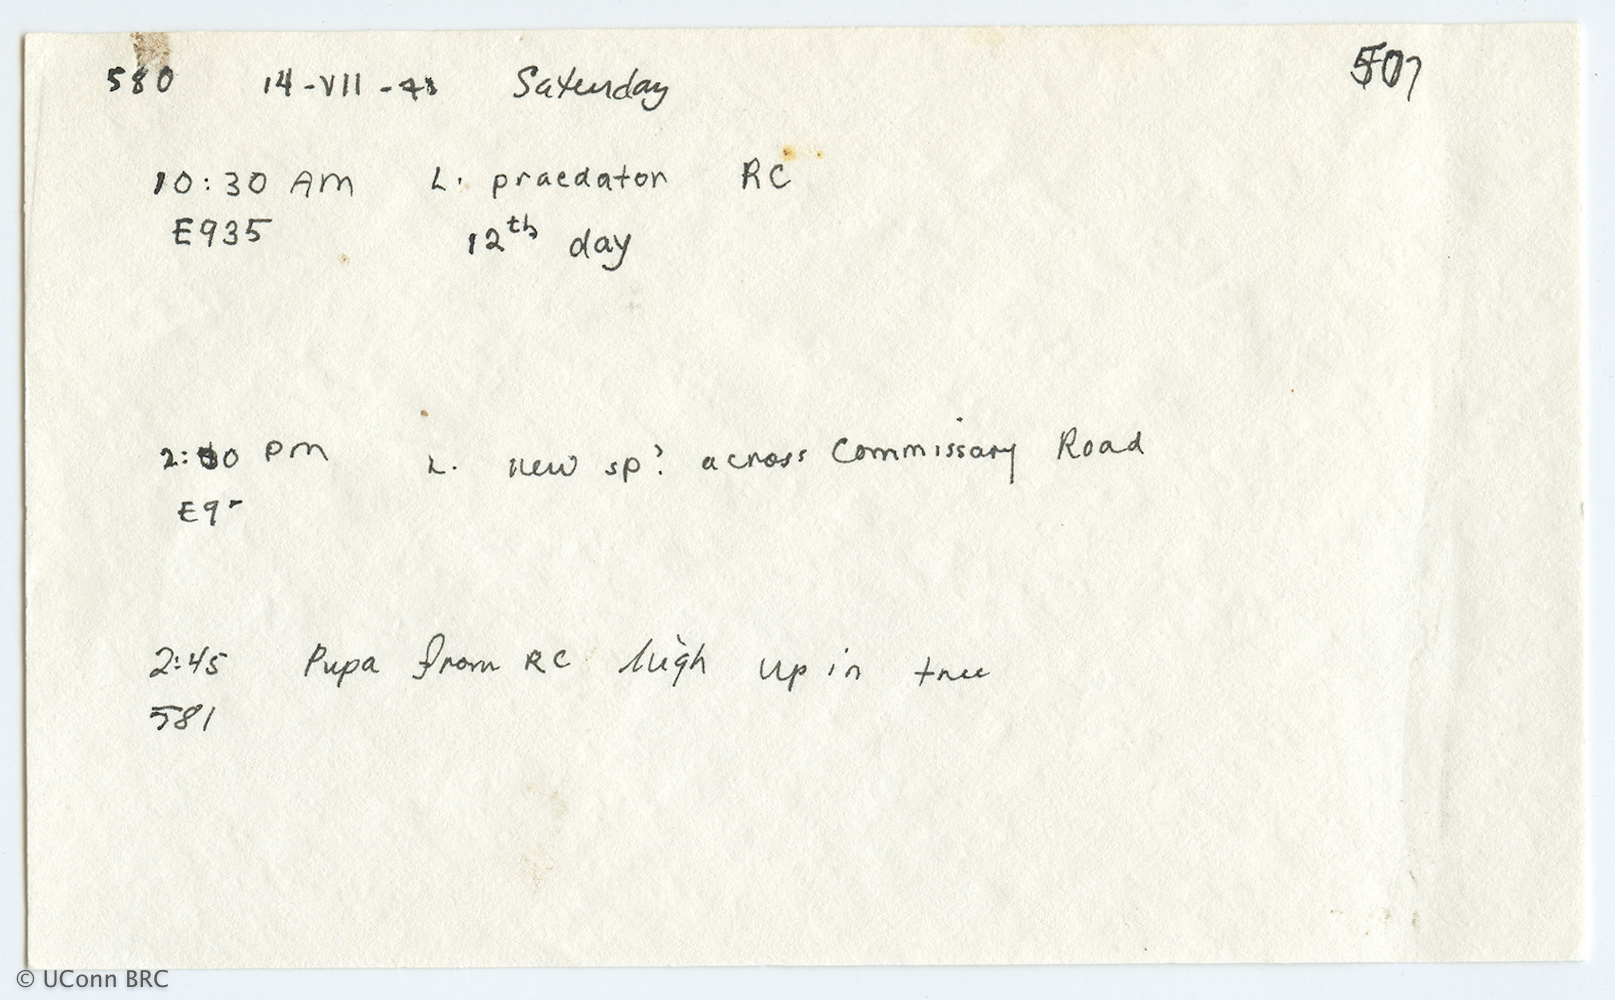 580 14-VII-73 Saturday 507
10:30 AM L. praedator RC
E935 12th day
2:00 PM L. new sp? across Commissary Road
E9-
2:45 Pupa from RC high up in tree
581
© UConn BRC